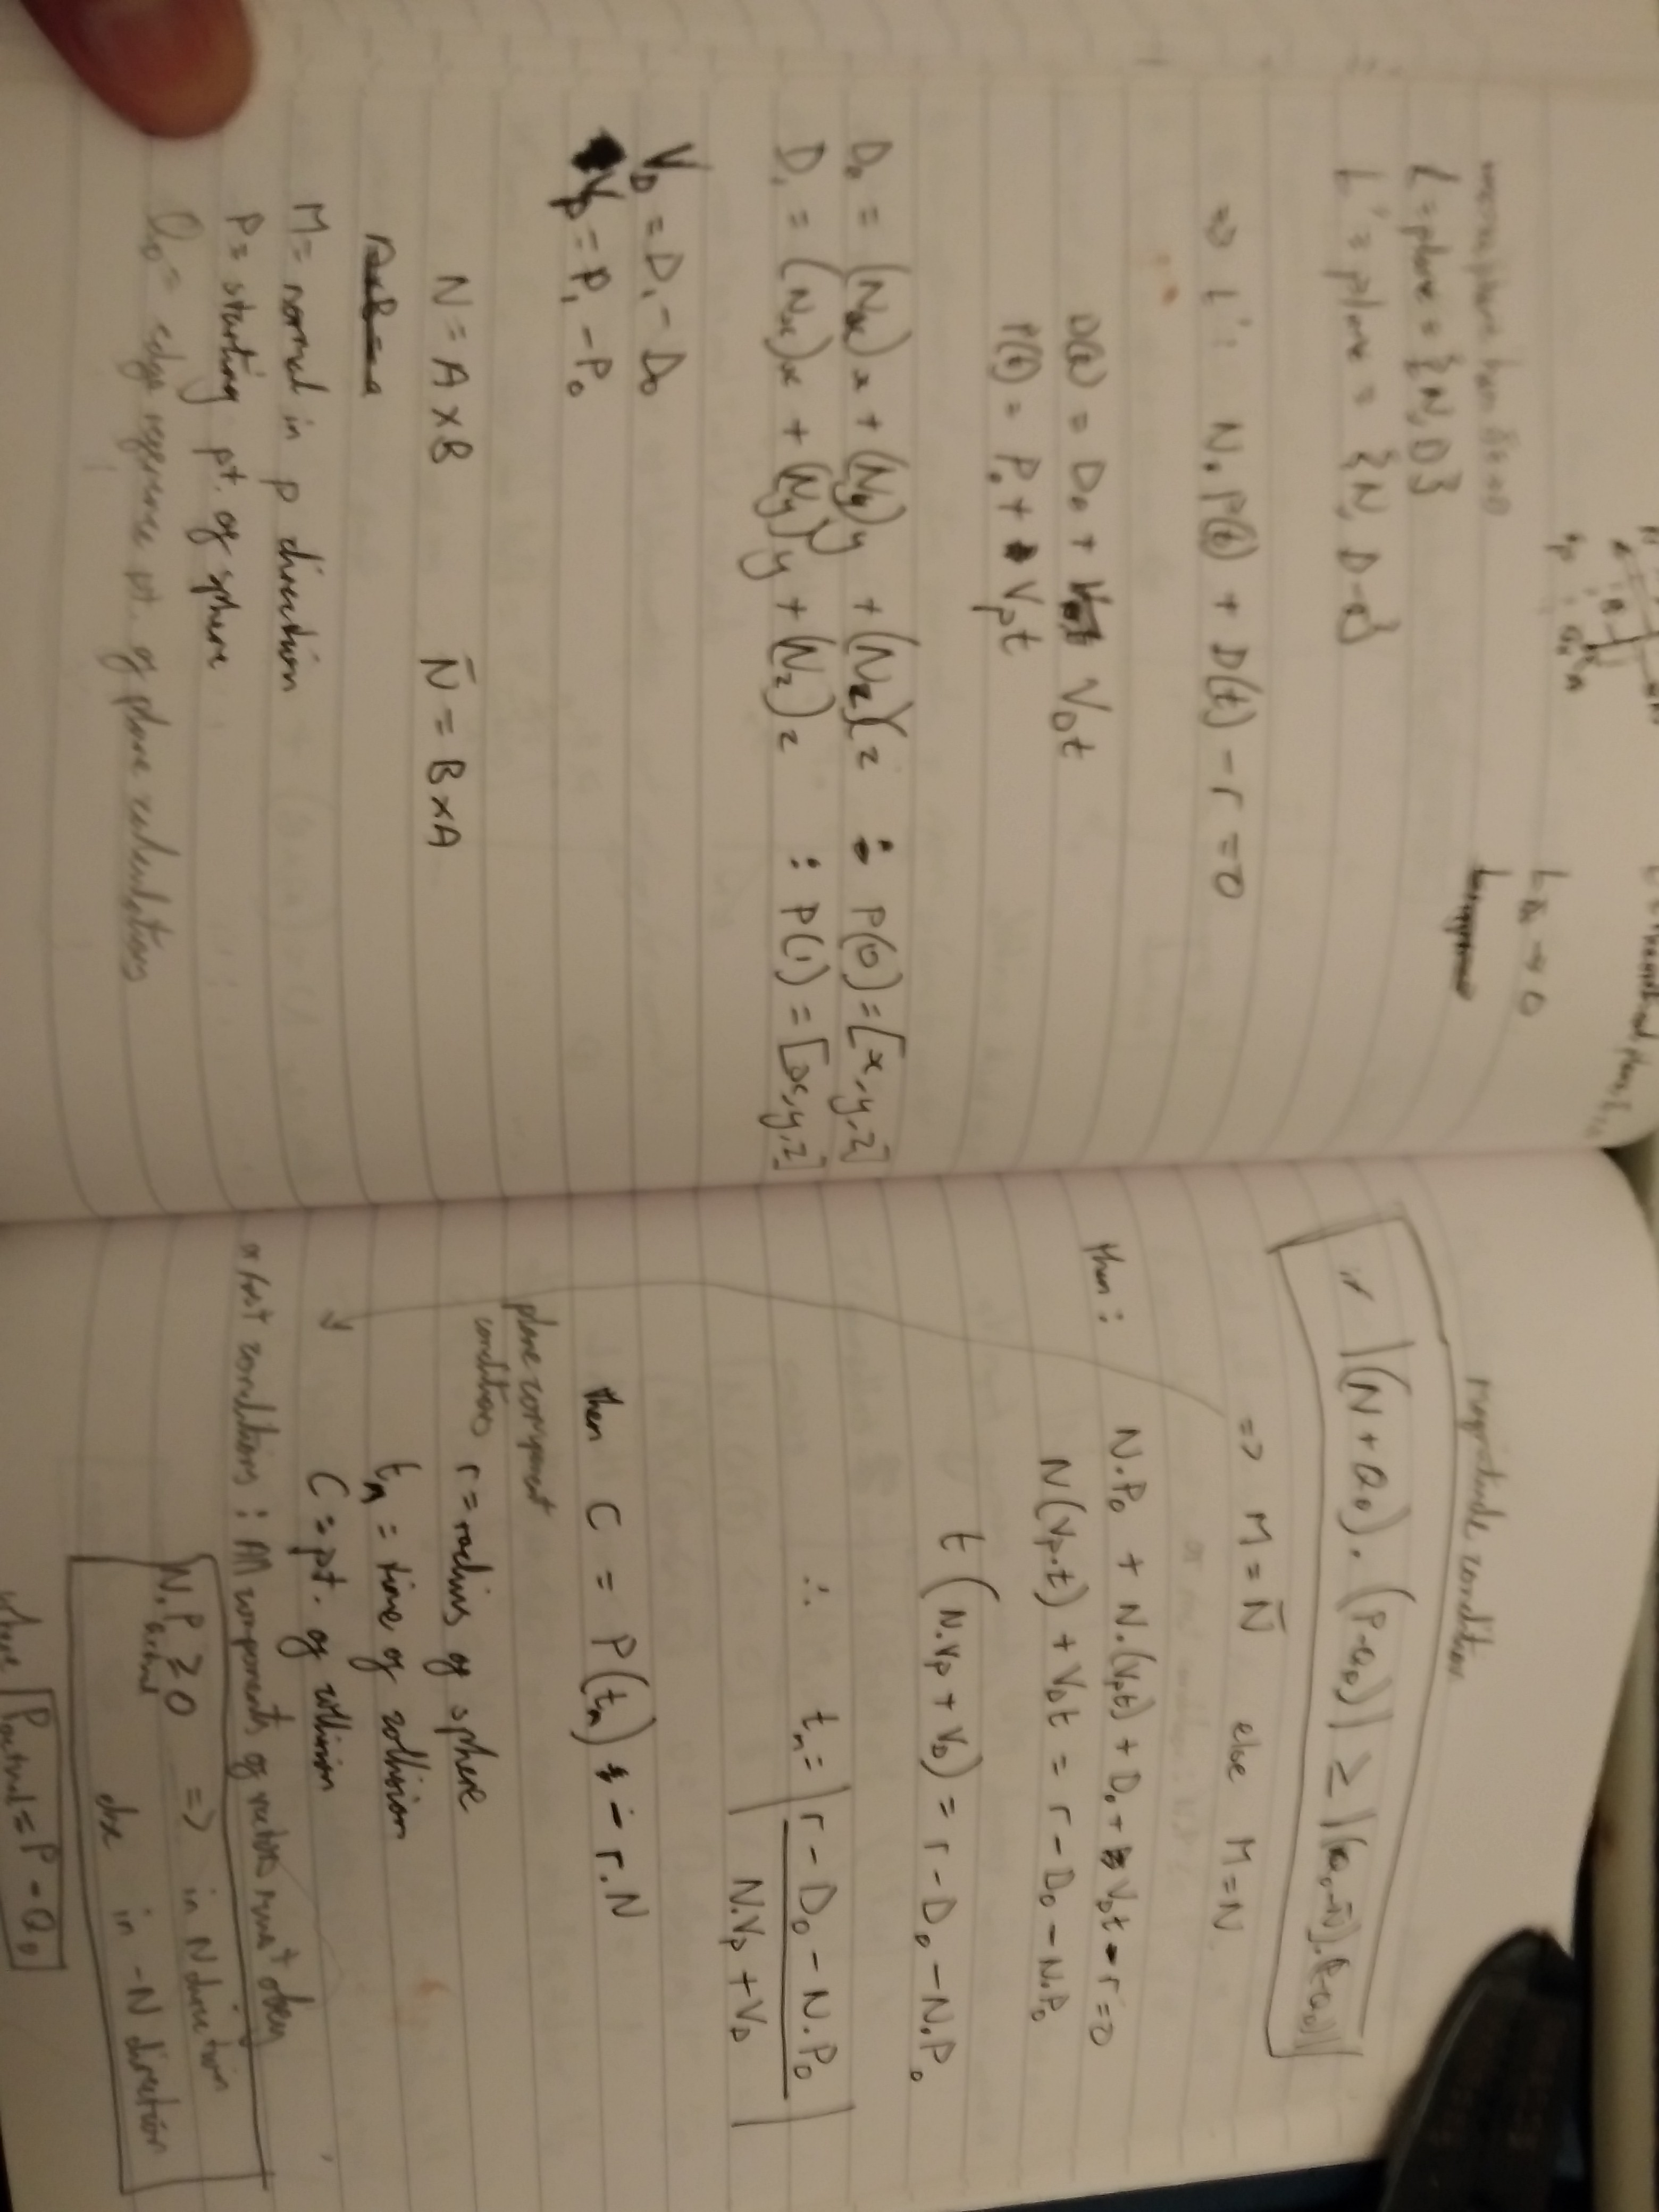 B
A
L = plane = {N, D}
L' = plane = {N, D-r}
=> L' : N.P(t) + D(t) - r = 0
D(t) = D₀ + V_D t
P(t) = P₀ + V_p t
D₀ = (Nx)x + (Ny)y + (Nz)z : P(0) = [x,y,z]
D₁ = (Nx)x + (Ny)y + (Nz)z : P(1) = [x,y,z]
V_D = D₁ - D₀
V_p = P₁ - P₀
N = A x B N̄ = B x A
A x B =
M = normal in p direction
P = starting pt. of sphere
Q₀ = edge reference pt. of plane calculations
magnitude condition
|(N + Q₀) . (P-Q₀)| ≥ |(Q₀-N̄).(P-Q₀)|
=> M = N̄ else M = N
then : N.P₀ + N.(Vpt) + D₀ + V_D t - r = 0
N(Vp.t) + V_D t = r - D₀ - N.P₀
t (N.Vp + V_D) = r - D₀ - N.P₀
∴ tₙ = |r - D₀ - N.P₀ / N.Vp + V_D|
then C = P(tₙ) - r.N
plane component
conditions
r = radius of sphere
tₙ = time of collision
C = pt. of collision
conditions : All components of vectors must obey
N.P actual ≥ 0 => in N direction
else in -N direction
where P actual = P - Q₀